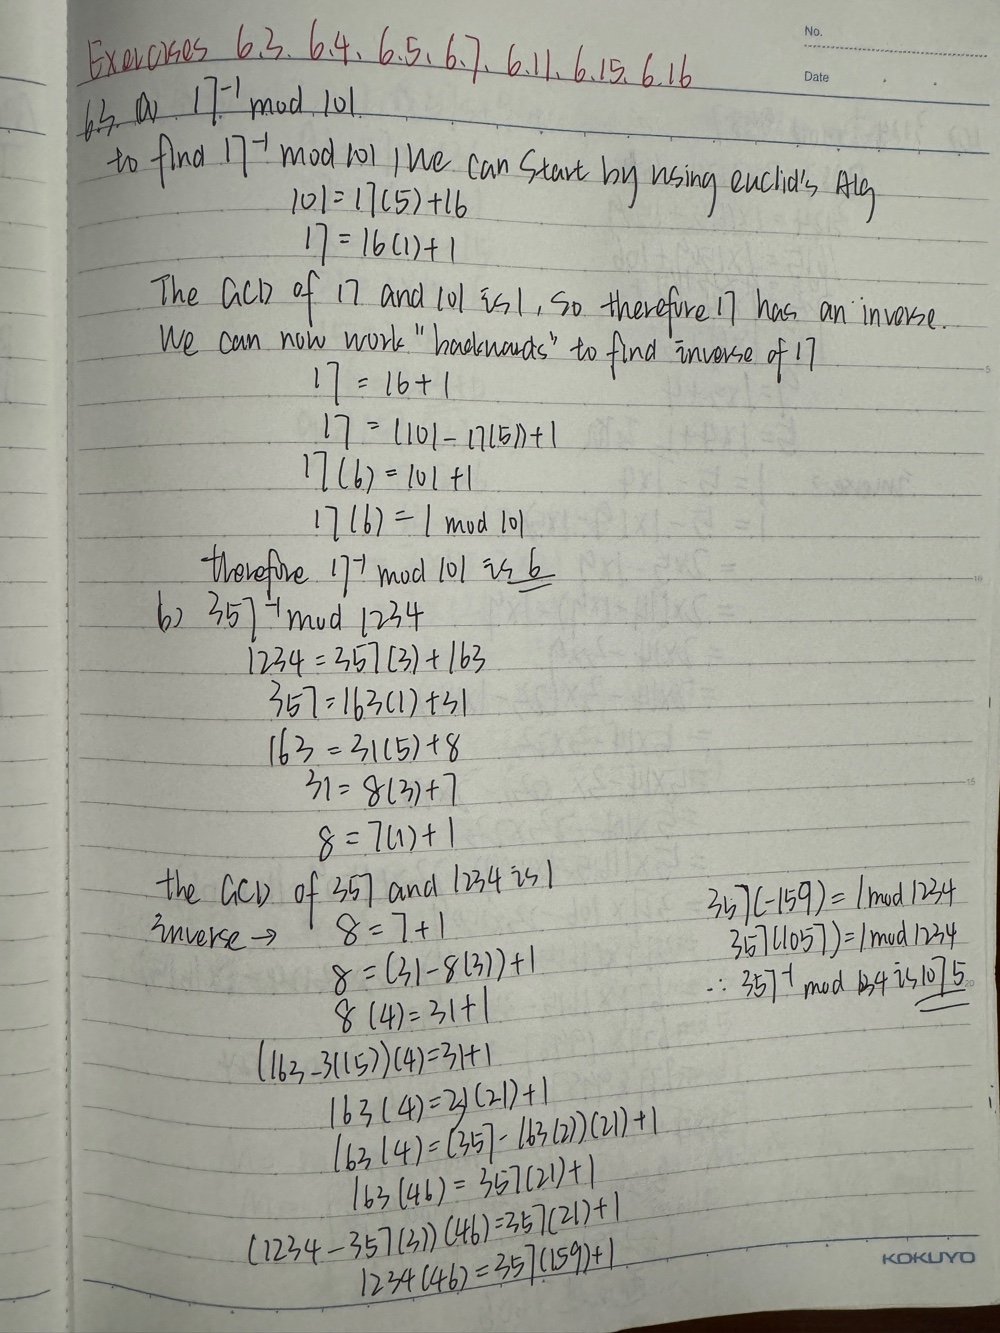 No.
Date
Exercises 6.3. 6.4. 6.5. 6.7. 6.11. 6.15. 6.16
6.3. a) 17⁻¹ mod 101
to find 17⁻¹ mod 101, we can start by using euclid's Alg
101 = 17(5)+16
17 = 16(1)+1
The GCD of 17 and 101 is 1, so therefore 17 has an inverse.
We can now work "backwards" to find inverse of 17
17 = 16+1
17 = (101-17(5))+1
17(6) = 101+1
17(6) = 1 mod 101
therefore 17⁻¹ mod 101 is 6
b) 357⁻¹ mod 1234
1234 = 357(3)+163
357 = 163(1)+31
163 = 31(5)+8
31 = 8(3)+7
8 = 7(1)+1
the GCD of 357 and 1234 is 1
inverse → 8 = 7+1
8 = (31-8(3))+1
8(4) = 31+1
(163-31(5))(4)=31+1
163(4)=31(21)+1
163(4)=(357-163(2))(21)+1
163(46) = 357(21)+1
(1234-357(3))(46)=357(21)+1
1234(46)=357(159)+1
357(-159)=1 mod 1234
357(1057)=1 mod 1234
∴ 357⁻¹ mod 1234 is 1075
KOKUYO